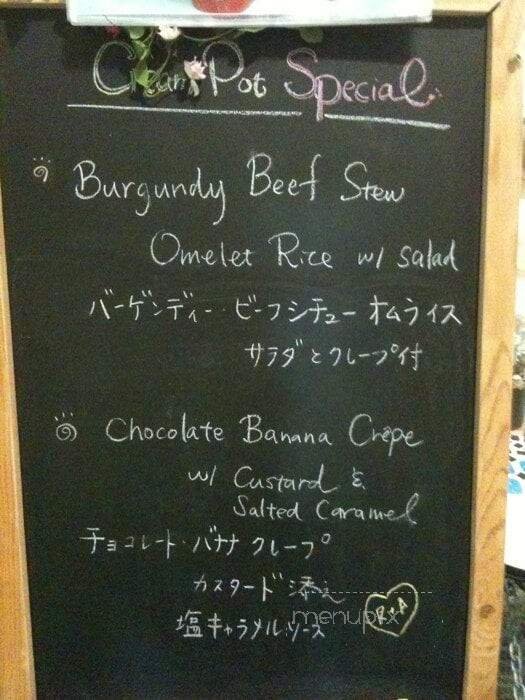 Cream Pot Special
Burgundy Beef Stew
Omelet Rice w/ salad
バーゲンディー・ビーフシチューオムライス
サラダとクレープ付
Chocolate Banana Crêpe
w/ Custard &
Salted Caramel
チョコレート・バナナクレープ
カスタード添え
塩キャラメルソース
R+A
menupix